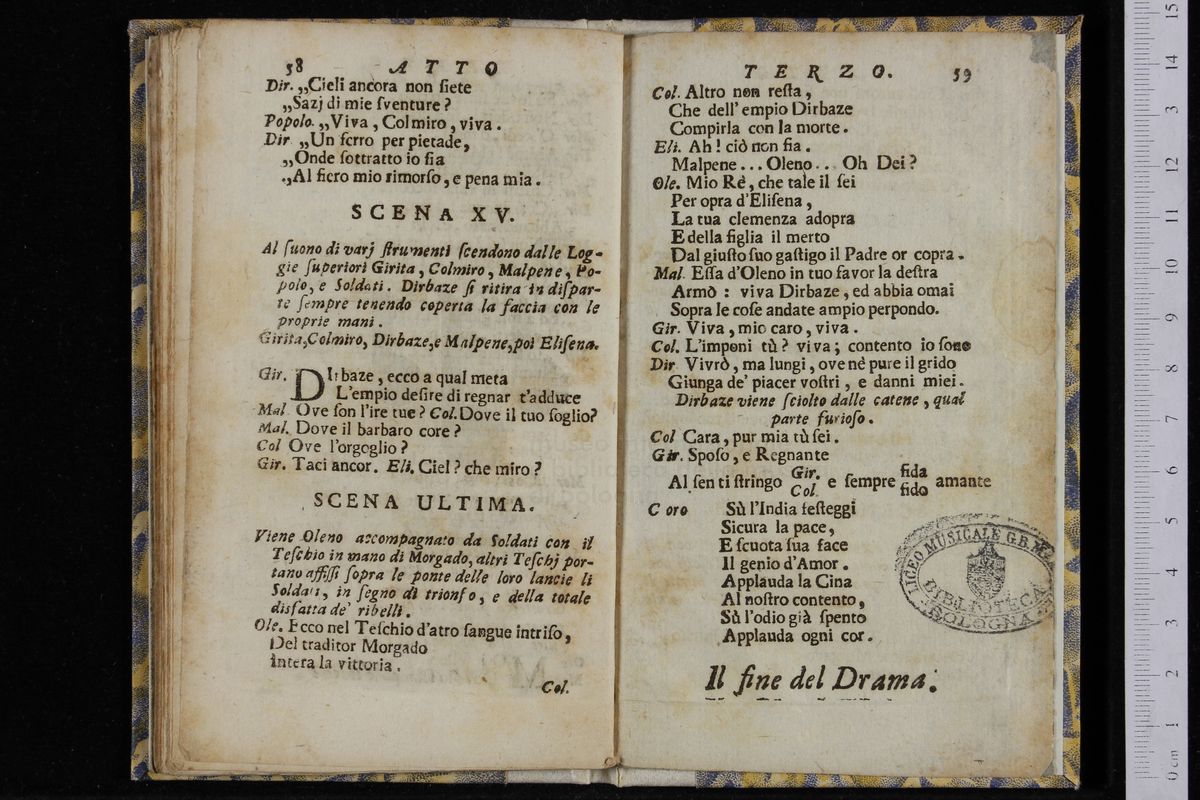 58 ATTO
Dir. „Cieli ancora non ſiete
„Sazj di mie ſventure?
Popolo. „Viva, Colmiro, viva.
Dir „Un ferro per pietade,
„Onde ſottratto io ſia
„Al fiero mio rimorſo, e pena mia.
SCENA XV.
Al ſuono di varj ſtrumenti ſcendono dalle Log-
gie ſuperiori Girita, Colmiro, Malpene, Po-
polo, e Soldati. Dirbaze ſi ritira in diſpar-
te ſempre tenendo coperta la faccia con le
proprie mani.
Girita, Colmiro, Dirbaze, e Malpene, poi Eliſena.
Gir. DIrbaze, ecco a qual meta
L'empio deſire di regnar t'adduce
Mal Ove ſon l'ire tue? Col. Dove il tuo ſoglio?
Mal. Dove il barbaro core?
Col Ove l'orgoglio?
Gir. Taci ancor. Eli. Ciel? che miro?
SCENA ULTIMA.
Viene Oleno accompagnato da Soldati con il
Teſchio in mano di Morgado, altri Teſchj por-
tano affiſſi ſopra le ponte delle loro lancie li
Soldati, in ſegno di trionfo, e della totale
disfatta de' ribelli.
Ole. Ecco nel Teſchio d'atro ſangue intriſo,
Del traditor Morgado
Intera la vittoria.
Col.
TERZO. 59
Col. Altro non reſta,
Che dell'empio Dirbaze
Compirla con la morte.
Eli. Ah! ciò non fia.
Malpene... Oleno... Oh Dei?
Ole. Mio Rè, che tale il ſei
Per opra d'Eliſena,
La tua clemenza adopra
E della figlia il merto
Dal giuſto ſuo gaſtigo il Padre or copra.
Mal. Eſſa d'Oleno in tuo favor la deſtra
Armò: viva Dirbaze, ed abbia omai
Sopra le coſe andate ampio perpondo.
Gir. Viva, mio caro, viva.
Col. L'imponi tù? viva; contento io ſono
Dir Vivrò, ma lungi, ove nè pure il grido
Giunga de' piacer voſtri, e danni miei.
Dirbaze viene ſciolto dalle catene, qual
parte furioſo.
Col Cara, pur mia tù ſei.
Gir. Spoſo, e Regnante
Al ſen ti ſtringo Gir. Col. e ſempre fida fido amante
Coro Sù l'India feſteggi
Sicura la pace,
E ſcuota ſua face
Il genio d'Amor.
Applauda la Cina
Al noſtro contento,
Sù l'odio già ſpento
Applauda ogni cor.
LICEO MUSICALE G.B.M.
BIBLIOTECA
BOLOGNA
Il fine del Drama.
0 cm 1 2 3 4 5 6 7 8 9 10 11 12 13 14 15